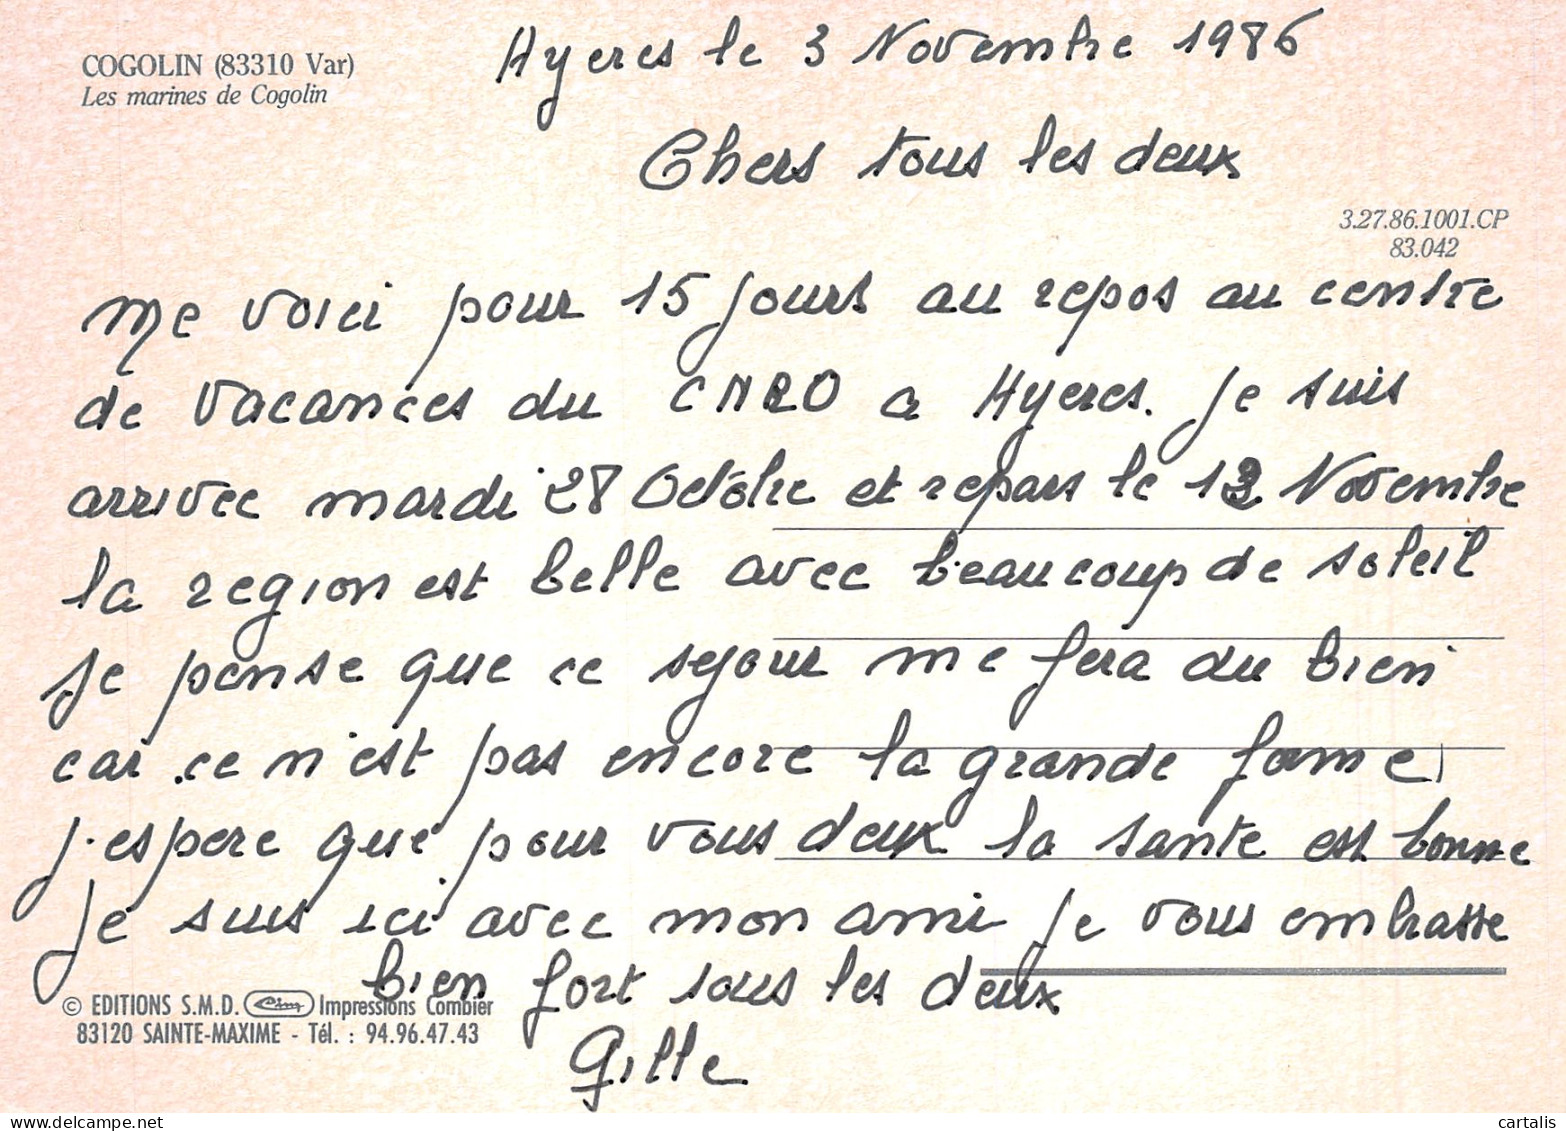 COGOLIN (83310 Var)
Les marines de Cogolin
Hyeres le 3 Novembre 1986
Chers tous les deux
3.27.86.1001.CP
83.042
me voici pour 15 jours au repos au centre
de vacances du CNRO a Hyeres. Je suis
arrivee mardi 28 Octobre et repars le 13 Novembre
la region est belle avec beaucoup de soleil
Je pense que ce sejour me fera du bien
car ce n'est pas encore la grande forme
j'espere que pour vous deux la sante est bonne
je suis ici avec mon ami je vous embrasse
bien fort tous les deux
© EDITIONS S.M.D. Cim Impressions Combier
83120 SAINTE-MAXIME - Tél. : 94.96.47.43
Gille
delcampe.net
cartalis